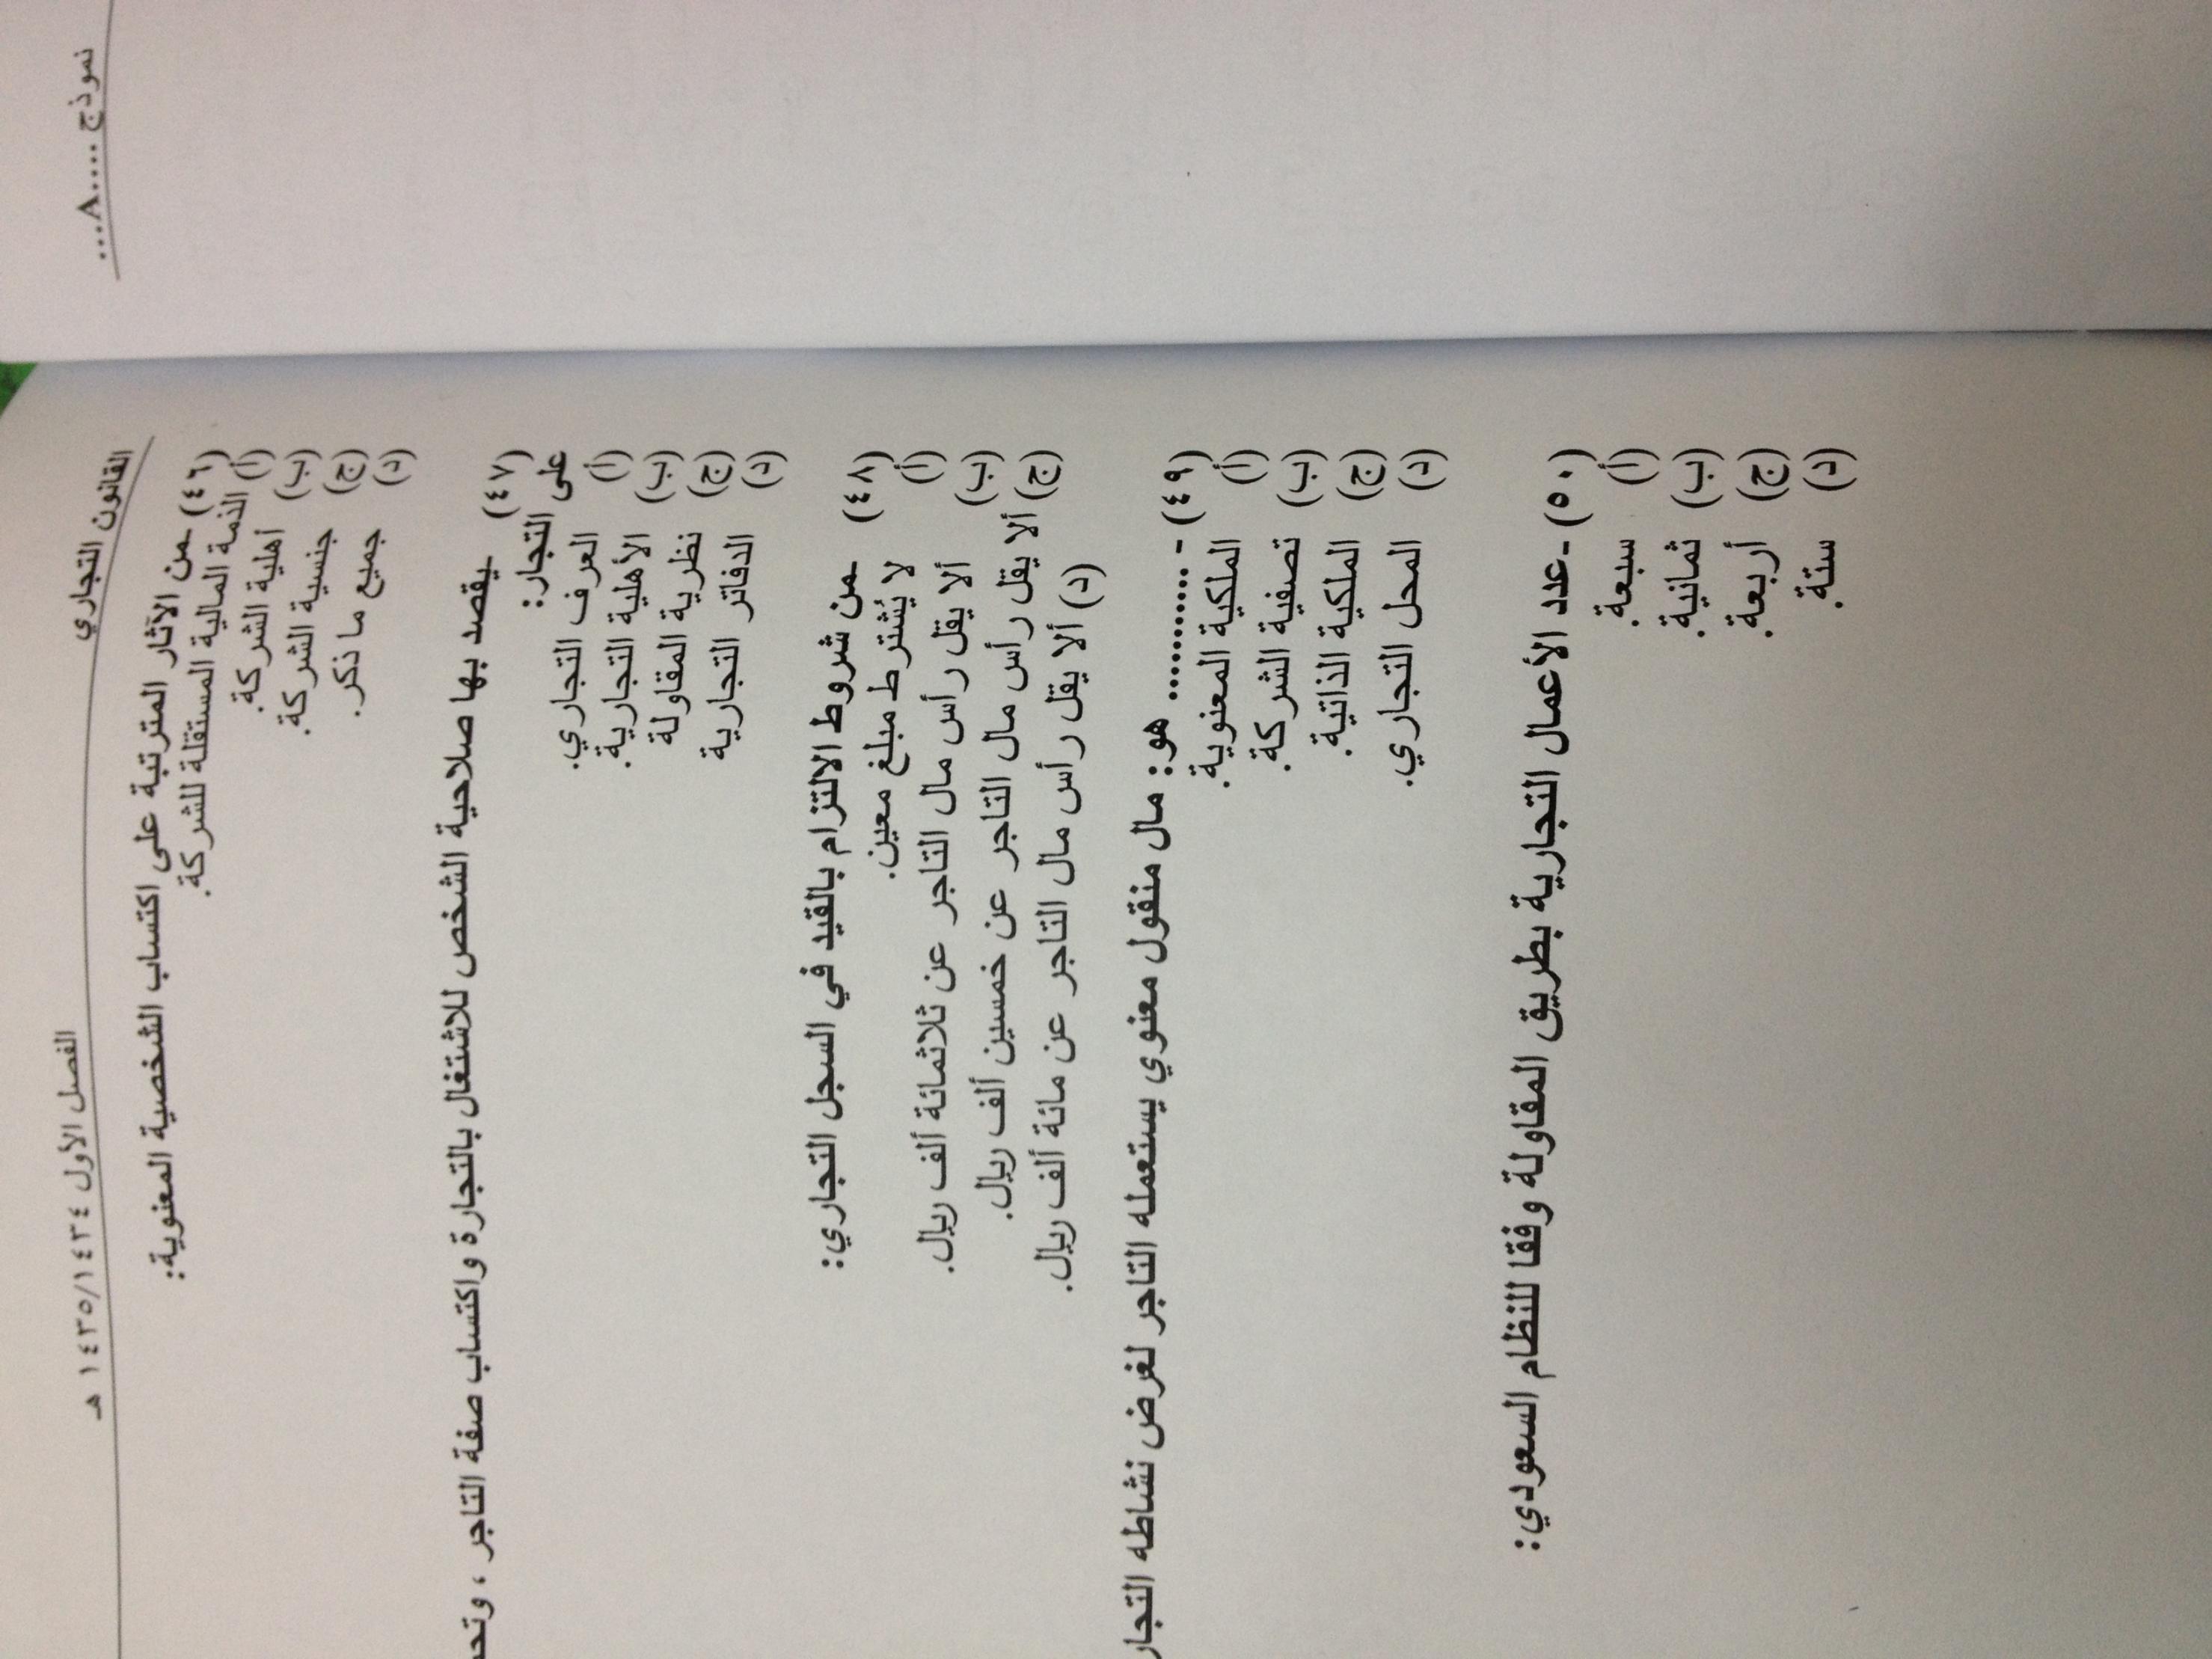 نموذج .....٨....
القانون التجاري
الفصل الأول ١٤٣٤/١٤٣٥ هـ
(٤٦) -من الآثار المترتبة على اكتساب الشخصية المعنوية:
(أ) الذمة المالية المستقلة للشركة.
(ب) أهلية الشركة.
(ج) جنسية الشركة.
(د) جميع ما ذكر.
(٤٧) يقصد بها صلاحية الشخص للاشتغال بالتجارة واكتساب صفة التاجر ، وتحم
على التجار:
(أ) العرف التجاري.
(ب) الأهلية التجارية.
(ج) نظرية المقاولة
(د) الدفاتر التجارية
(٤٨) -من شروط الالتزام بالقيد في السجل التجاري:
(أ) لا يُشترط مبلغ معين.
(ب) ألا يقل رأس مال التاجر عن ثلاثمائة ألف ريال.
(ج) ألا يقل رأس مال التاجر عن خمسين ألف ريال.
(د) ألا يقل رأس مال التاجر عن مائة ألف ريال.
(٤٩) - ............ هو: مال منقول معنوي يستعمله التاجر لغرض نشاطه التجار
(أ) الملكية المعنوية.
(ب) تصفية الشركة.
(ج) الملكية الذاتية.
(د) المحل التجاري.
(٥٠) -عدد الأعمال التجارية بطريق المقاولة وفقا للنظام السعودي:
(أ) سبعة.
(ب) ثمانية.
(ج) أربعة.
(د) ستة.